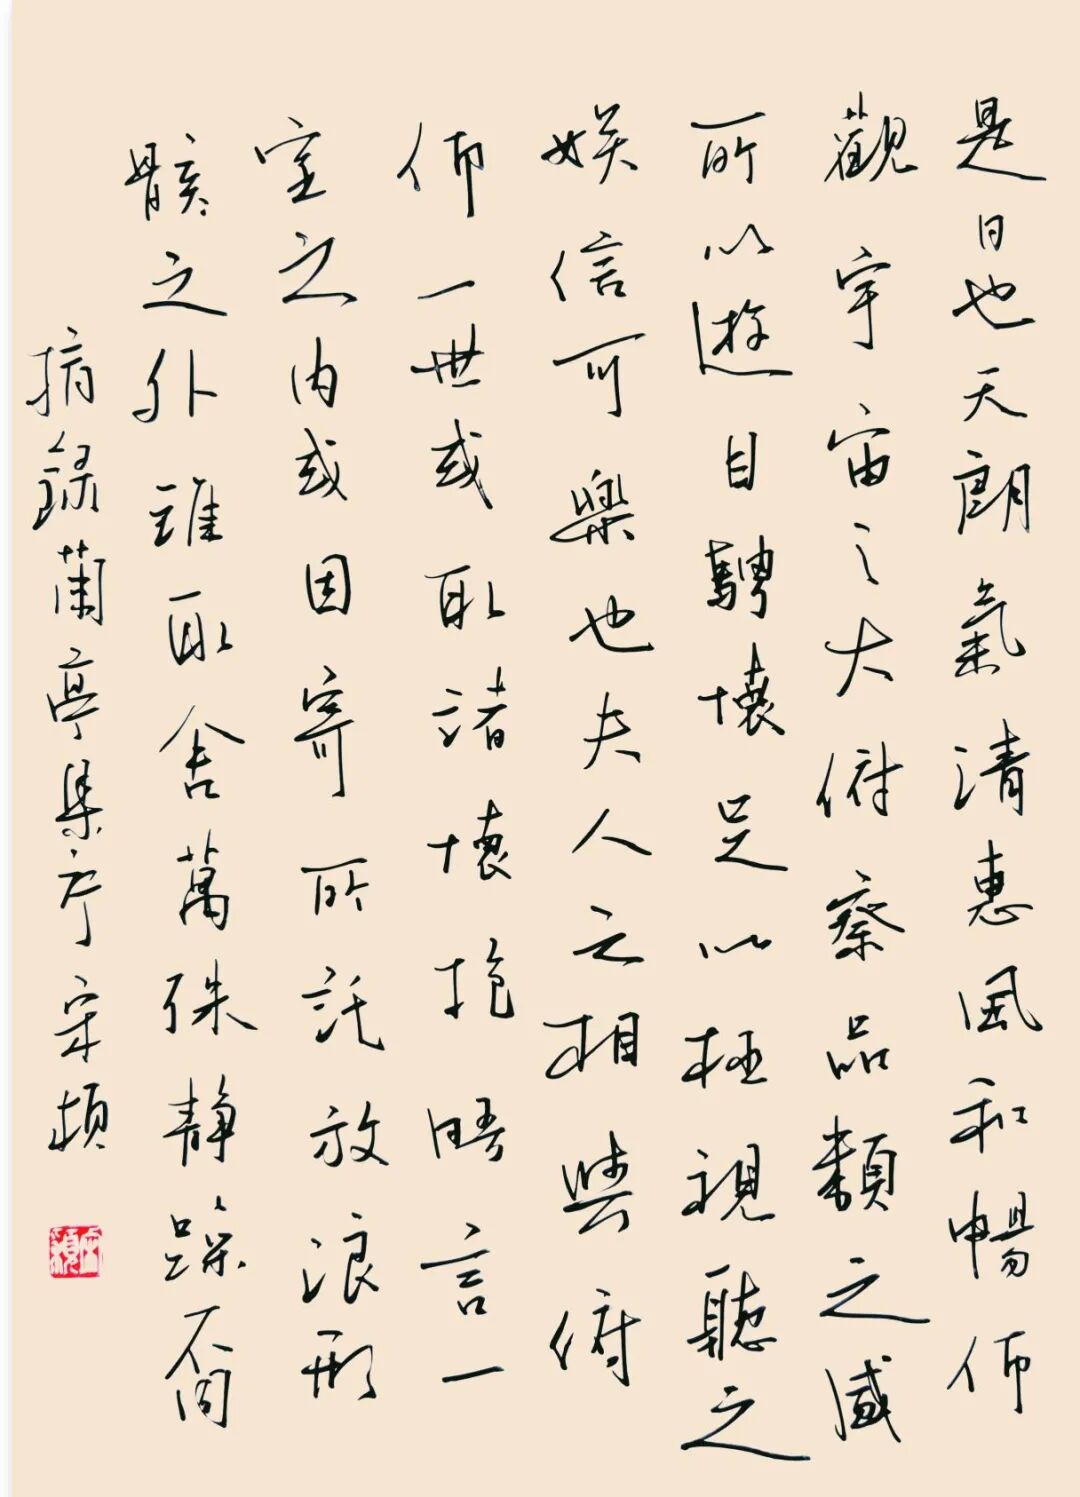 是日也天朗氣清惠風和暢仰
觀宇宙之大俯察品類之盛
所以遊目騁懷足以極視聽之
娛信可樂也夫人之相與俯
仰一世或取諸懷抱晤言一
室之內或因寄所託放浪形
骸之外雖取舍萬殊静躁不同
摘録蘭亭集序宋